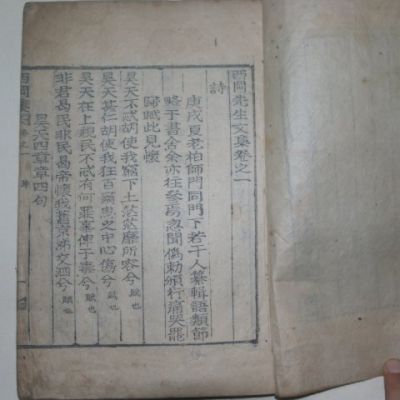 西岡先生文集卷之一
詩
庚戌夏老柏師門同門下若干人纂輯語類節
略于書舍余亦往參焉忽聞僞勅頒行痛哭罷
歸賦此見懷
昊天不忒胡使我竆下土茫茫靡所容兮 賦也
昊天其仁胡使我狂百爾思之中心傷兮 賦也
昊天在上視民不忒有何罪辜使于毒兮 賦也
非君曷民非民曷帝懷我舊京涕交泗兮 賦也
昊天四章章四句
西岡集 卷之一